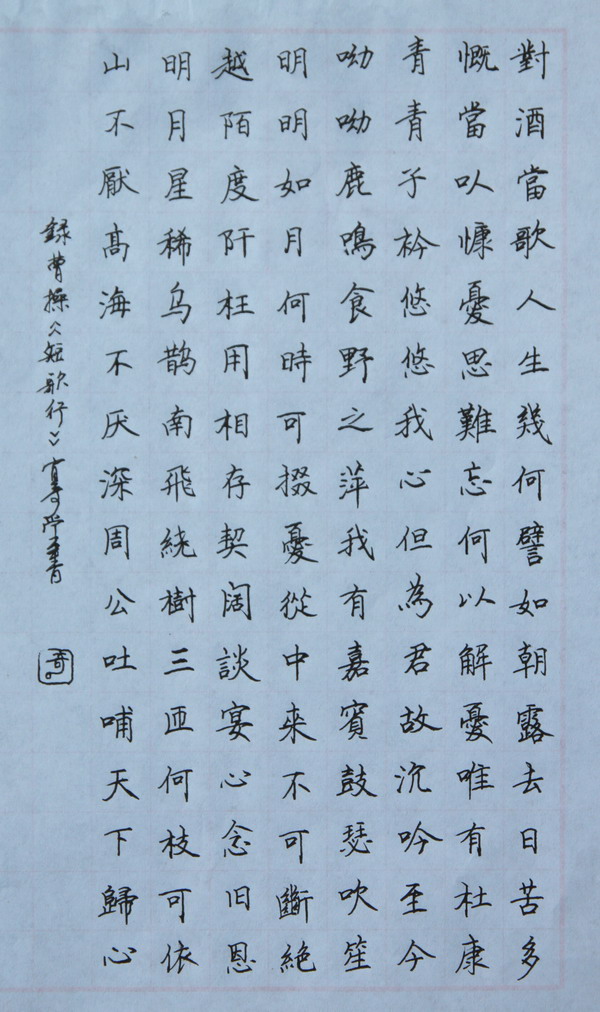 對酒當歌人生幾何譬如朝露去日苦多
慨當㕥慷憂思難忘何以解憂唯有杜康
青青子衿悠悠我心但為君故沉吟至今
呦呦鹿鳴食野之萍我有嘉賓鼓瑟吹笙
明明如月何時可掇憂從中來不可斷絶
越陌度阡枉用相存契阔談宴心念旧恩
明月星稀乌鹊南飛繞樹三匝何枝可依
山不厭髙海不厌深周公吐哺天下歸心
録曹操《短歌行》